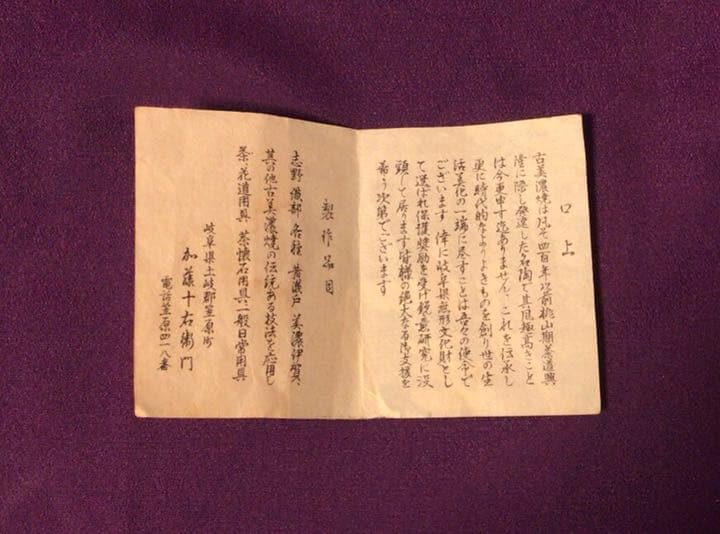 口上
古美濃焼は凡そ四百年以前桃山期茶道興
隆に際し発達した名陶で其風趣高きこと
は今更申す迄ありません、これを伝承し
更に時代的なよりよきものを創り世の生
活美化の一端に尽すことは吾々の使命で
ございます 偉に岐阜県無形文化財とし
て選ばれ保護奨励を受け鋭意研究に没
頭して居ります皆様の絶大なる御支援を
希う次第でございます
製作品目
志野 織部 各種 黄瀬戸 美濃伊賀、
其の他古美濃焼の伝統ある技法を応用し
茶・花道用具 茶懐石用具、一般日常用具
岐阜県土岐郡笠原町
加藤十右衛門
電話笠原四一八番